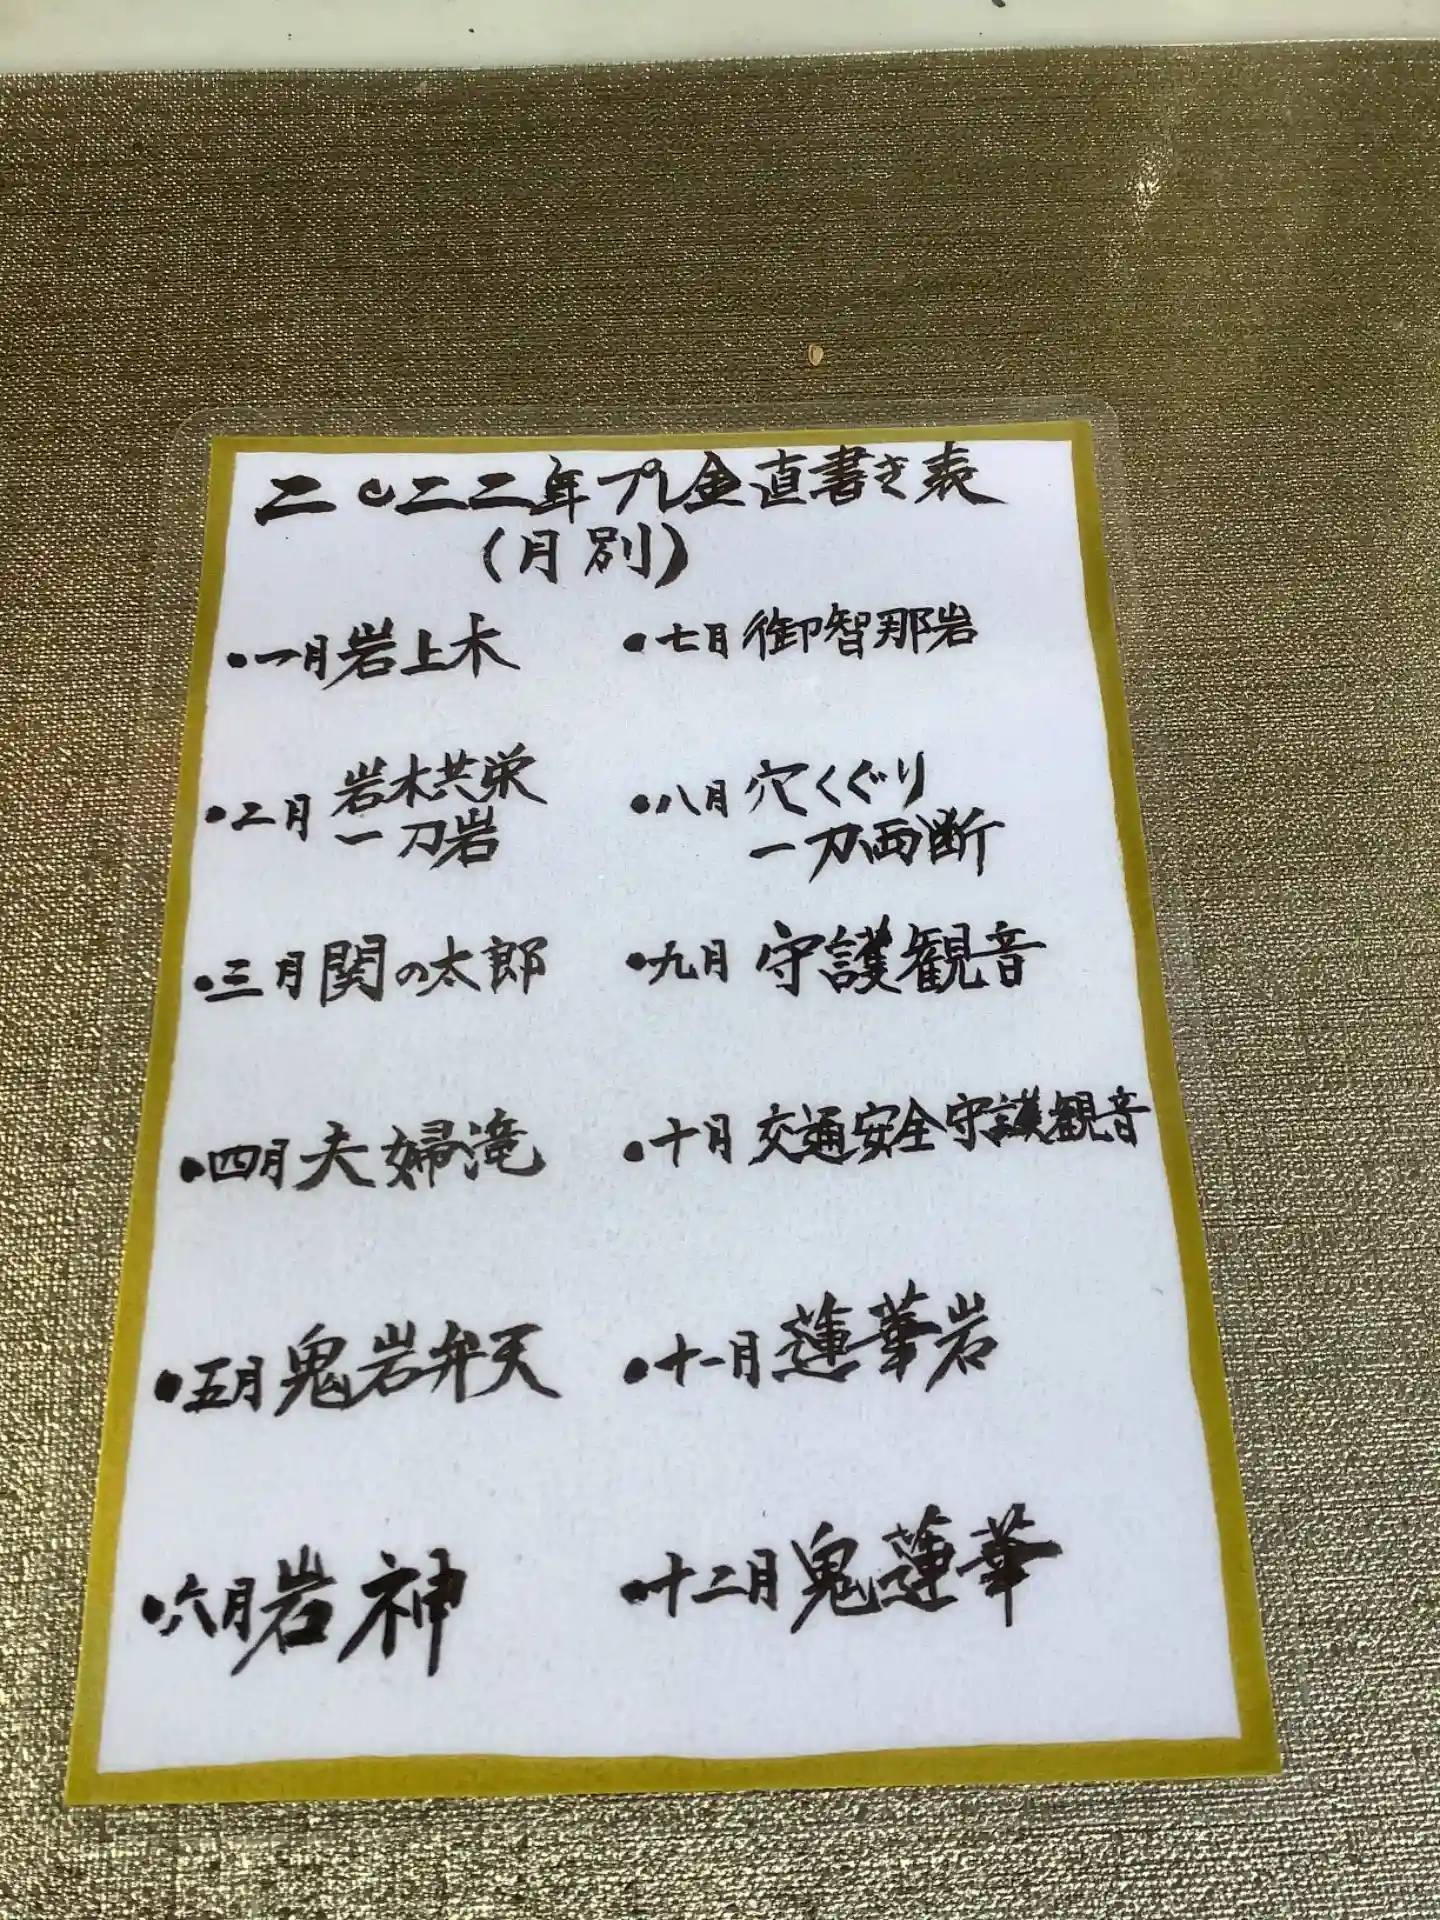 二〇二二年プレ金直書き表
(月別)
•一月岩上木
•二月岩木共栄
一刀岩
•三月関の太郎
•四月夫婦滝
•五月鬼岩弁天
•六月岩神
•七月御智那岩
•八月穴くぐり
一刀両断
•九月守護観音
•十月交通安全守護観音
•十一月蓮華岩
•十二月鬼蓮華